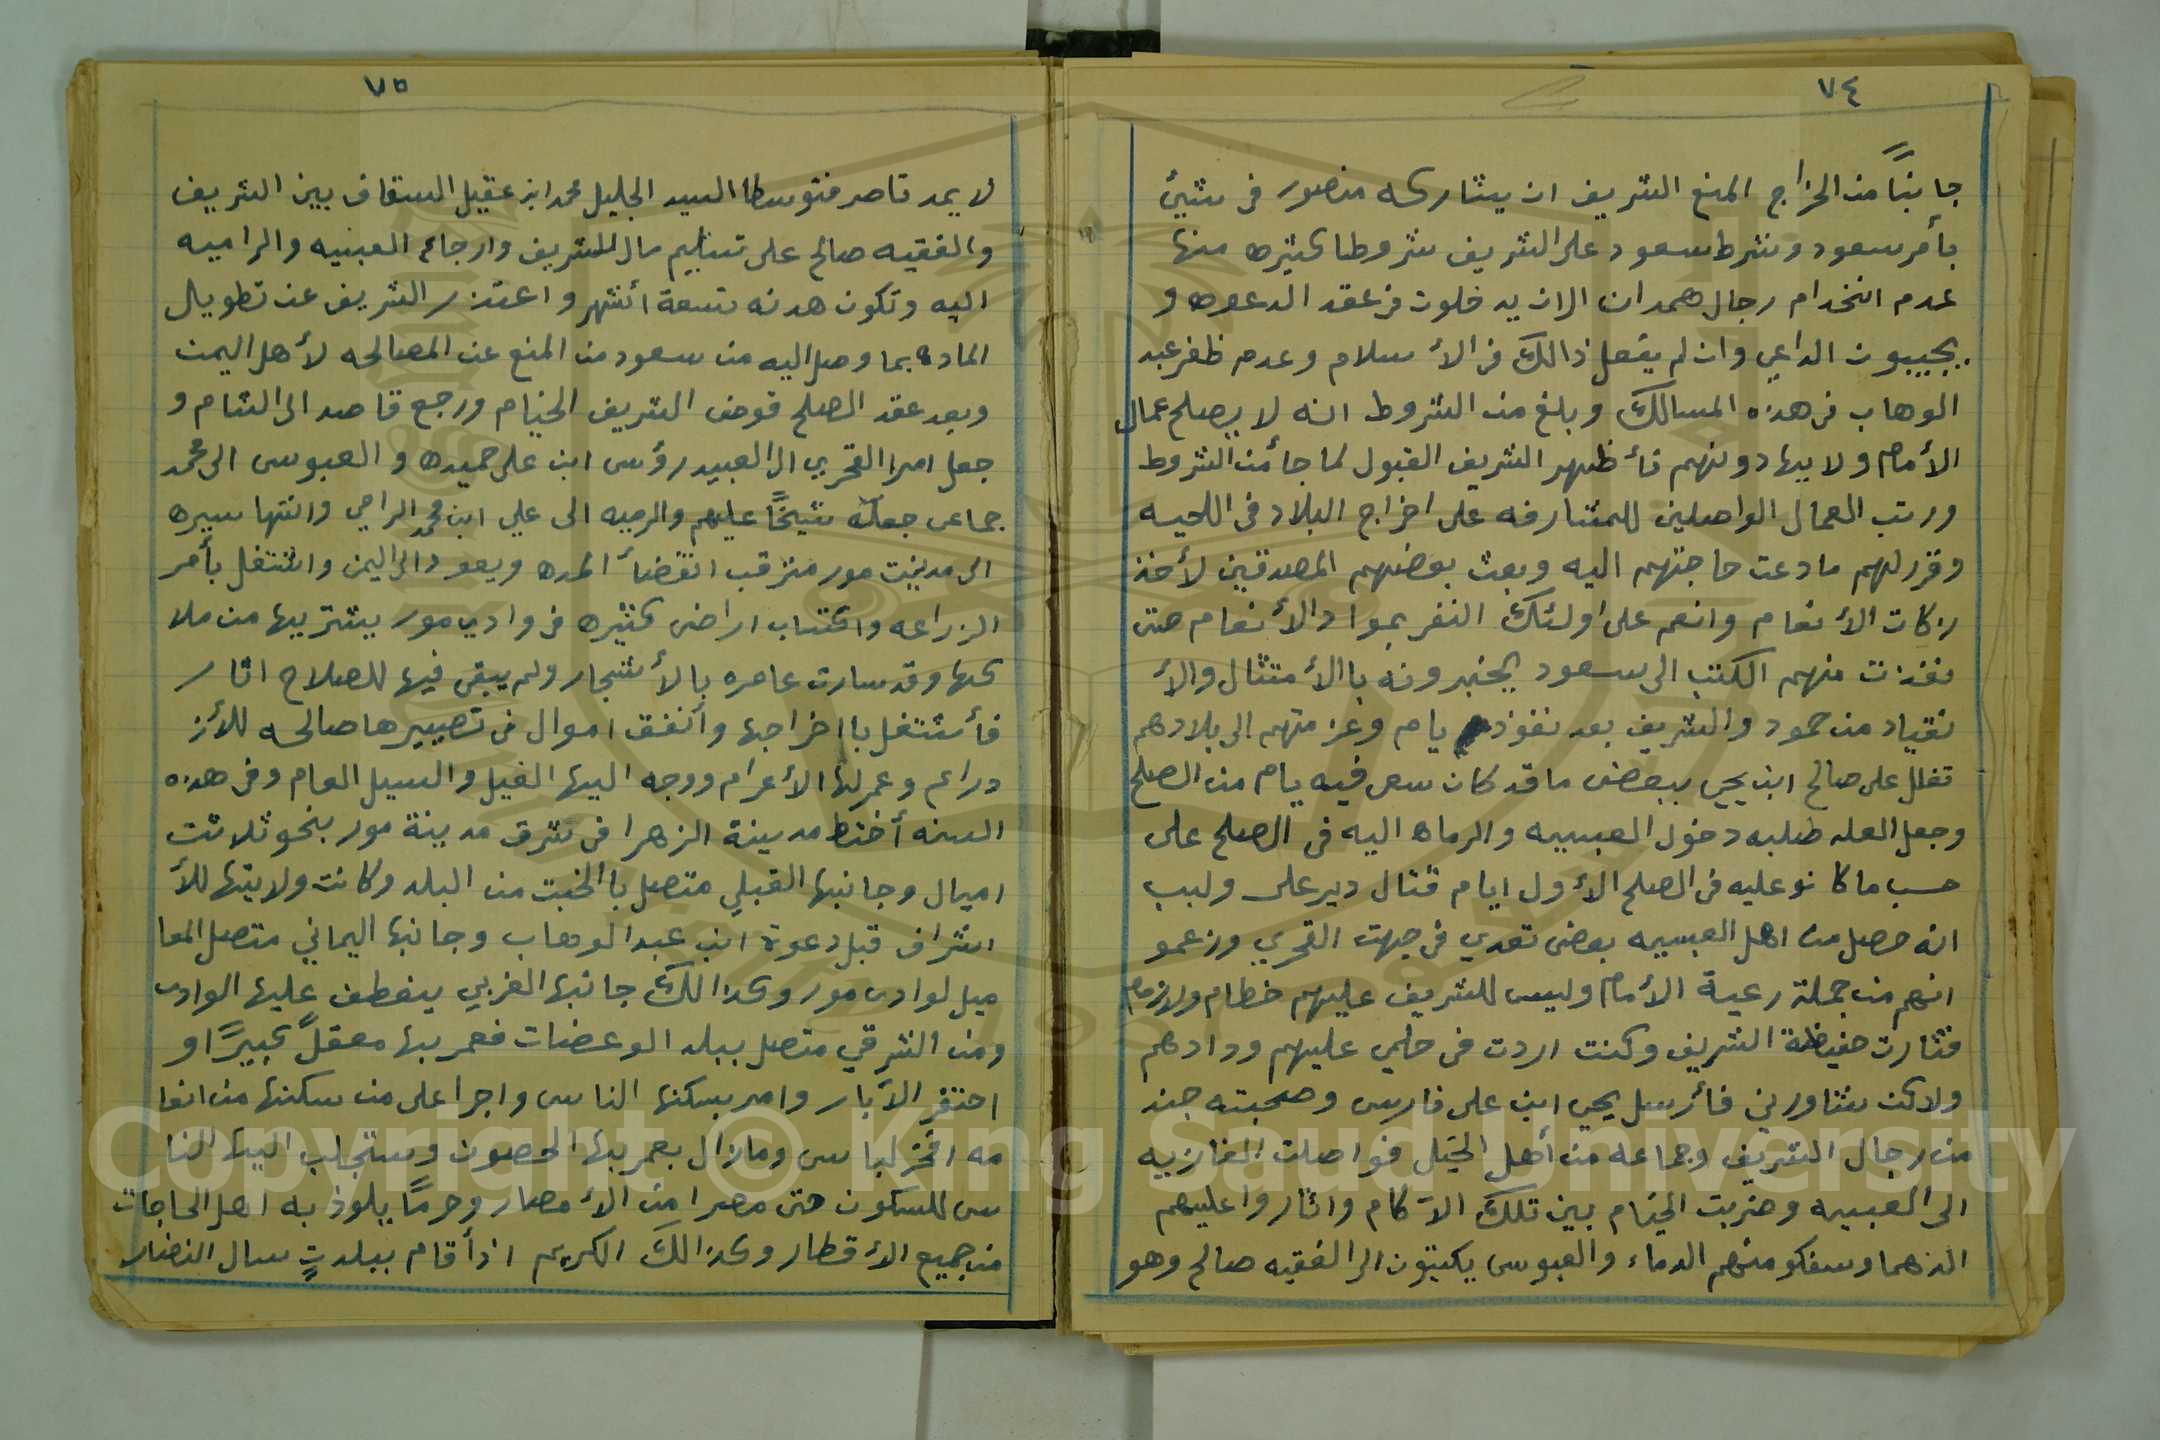 ٧٤
جانباً من الخراج المنع الشريف ان يشاركه منصور فى شيئ
بأمر سعود وشرط سعود على الشريف شروطا كثيره منها
عدم انخدام رجال همدان الا ان يدخلون فى عقد الدعوه و
يجيبون الداعي وان لم يفعل ذالك فى الأسلام وعدم ظفر عبد
الوهاب فى هذه المسالك وبلغ من الشروط انه لا يصلح عمال
الأمام ولا يهادونهم فأظهر الشريف القبول لما جأ من الشروط
ورتب العمال الواصلين للمشارفه على اخراج البلاد فى اللحيه
وقرر لهم ما دعت حاجتهم اليه وبعث بعضهم المصدقين لأخذ
زكات الأنعام وانعم على اولئك النفر بمواد الأنعام حتى
نفذت منهم الكتب الى سعود يخبرونه باالأمتثال والأ
نقياد من حمود والشريف بعد نفوذ يام وعزمتهم الى بلادهم
تغلل على صالح ابن يحي ببعض ما قد كان سعى فيه يام من الصلح
وجعل العله طلبه دخول العبسيه والرماه اليه فى الصلح على
حسب ما كانو عليه فى الصلح الأول ايام قتال دير على ولبب
انه حصل من اهل العبسيه بعض تعدي فى جهت القحري وزعمو
انهم من جملة رعية الأمام وليس للشريف عليهم خطام ولا زمام
فثارت حفيظة الشريف وكنت اردت فى حلمي عليهم ودادهم
ولاكن شاورني فأرسل يحي ابن على فارس وصحبته جند
من رجال الشريف وجماعه من أهل الخيل فواصلت الغازيه
الى العبسيه وضربت الخيام بين تلك الآكام واثاروا عليهم
الدهما وسفكو منهم الدماء والعبوس يكتبون الى الفقيه صالح وهو
٧٥
لا يمد ناصر فتوسط السيد الجليل محمد ابن عقيل السقاف بين الشريف
والفقيه صالح على تسليم مال للشريف وارجاع العبسيه والراميه
اليه وتكون هدنه تسعة أشهر واعتذر الشريف عن تطويل
الماده بما وصل اليه من سعود من المنع عن المصالحه لأهل اليمن
وبعد عقد الصلح قوض الشريف الخيام ورجع قاصد الى الشام و
جعل امرا القحري الى العبيد رؤس ابن على حميده والعبوس الى محمد
جماعى جعله شيخًا عليهم والرميه الى علي ابن محمد الراحي وانتها سيره
الى مدينت مور مترقب انقضأ المده ويعود الى اليمن واشتغل بأمر
الزراعه واكتساب اراضى كثيره فى وادي مور يشتريها من ملا
كها وقد سارت عامره بالأشجار ولم يبقى فيها للصلاح اثار
فأشتغل با اخراجها وأنفق اموال فى تصييرها صالحه للأز
دراعى وعمر لها الأعرام ووجه اليها الغيل والسيل العام وفى هذه
السنه أختط مدينة الزهرا فى شرق مدينة مور بنحو ثلاثت
اميال وجانبها القبلي متصل با الخبت من البلد وكانت ولايتها للأ
اشراف قبل دعوة ابن عبد الوهاب وجانبها اليماني متصل المعا
ميل لوادى مور وكذالك جانبها الغربي ينعطف عليها الوادى
ومن الشرقي متصل ببلد الوعضات فعمر بها معقلً كبيرًا و
احتفر الآبار وامر بسكنها الناس واجرا على من سكنها من انعا
مه افخر لباس ومازال يعمر بها الحصون ويستجلب اليها النا
س للسكون حتى مصرا من الأمصار وحرمًا يلوذ به اهل الحاجات
من جميع الأقطار وكذالك الكريم اذأ قام ببلدتٍ سال النضار
Copyright © King Saud University
1957